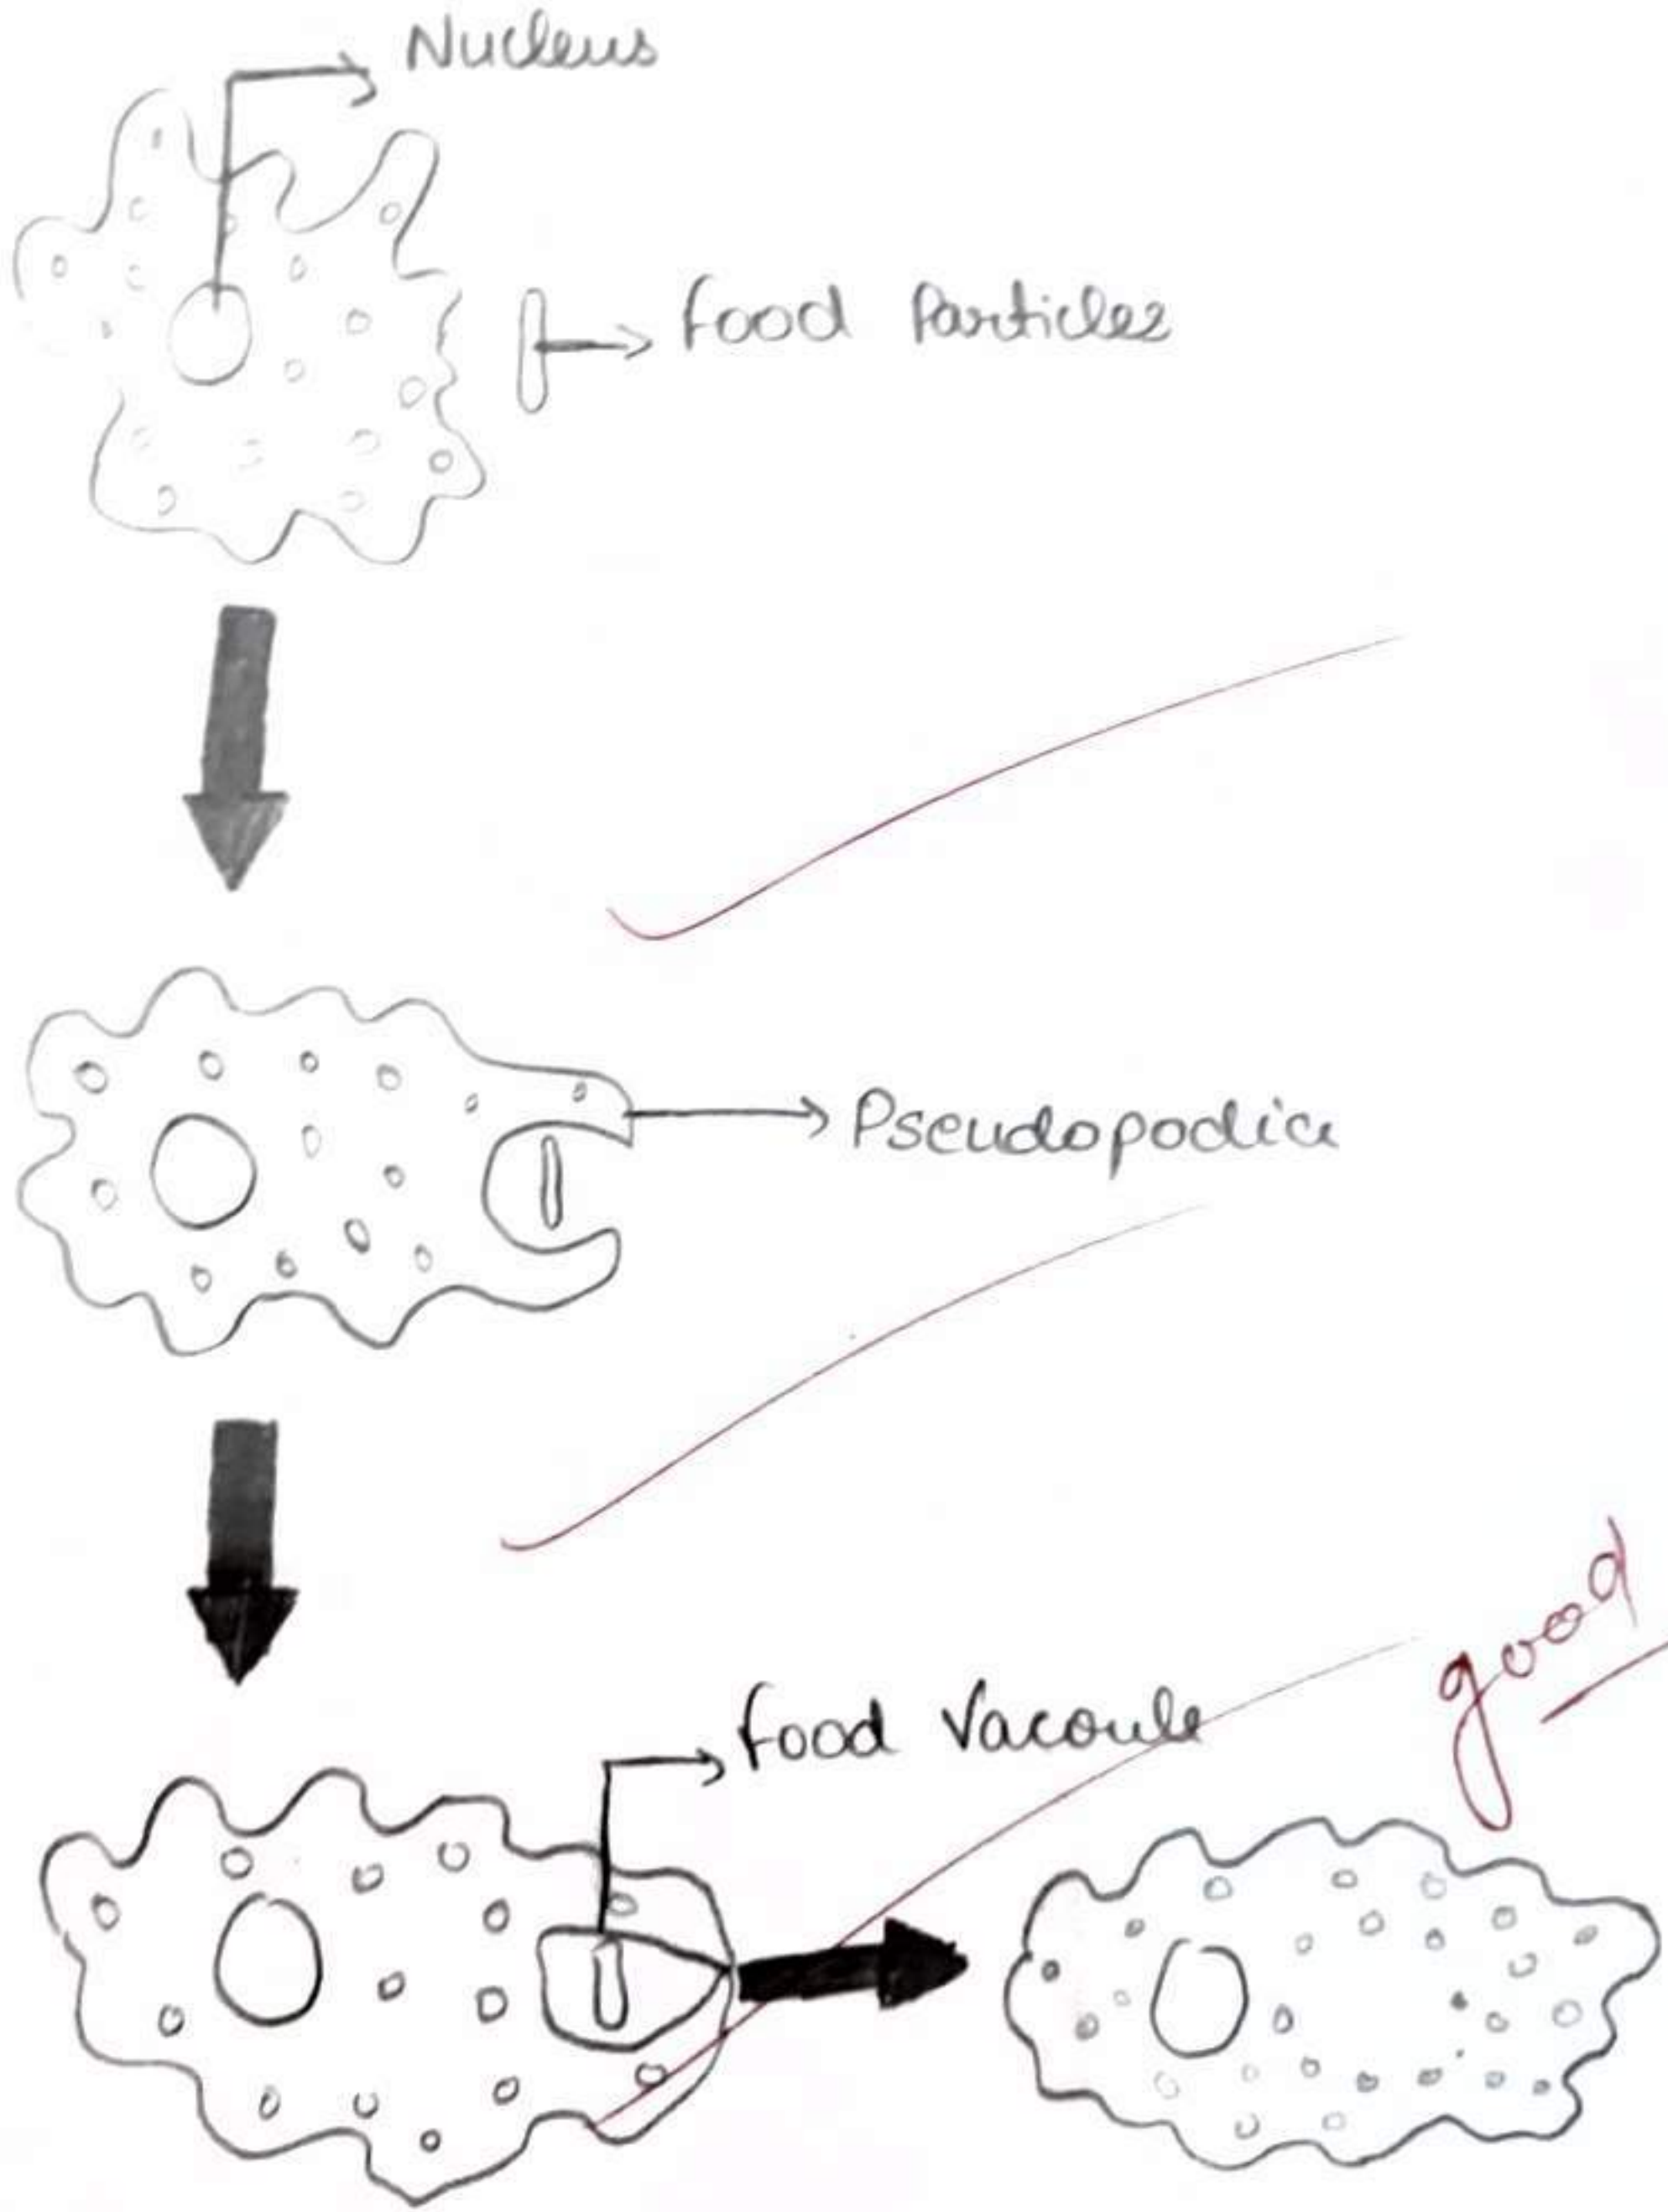 Nucleus
food Particles
Pseudopodia
good
food Vacoule